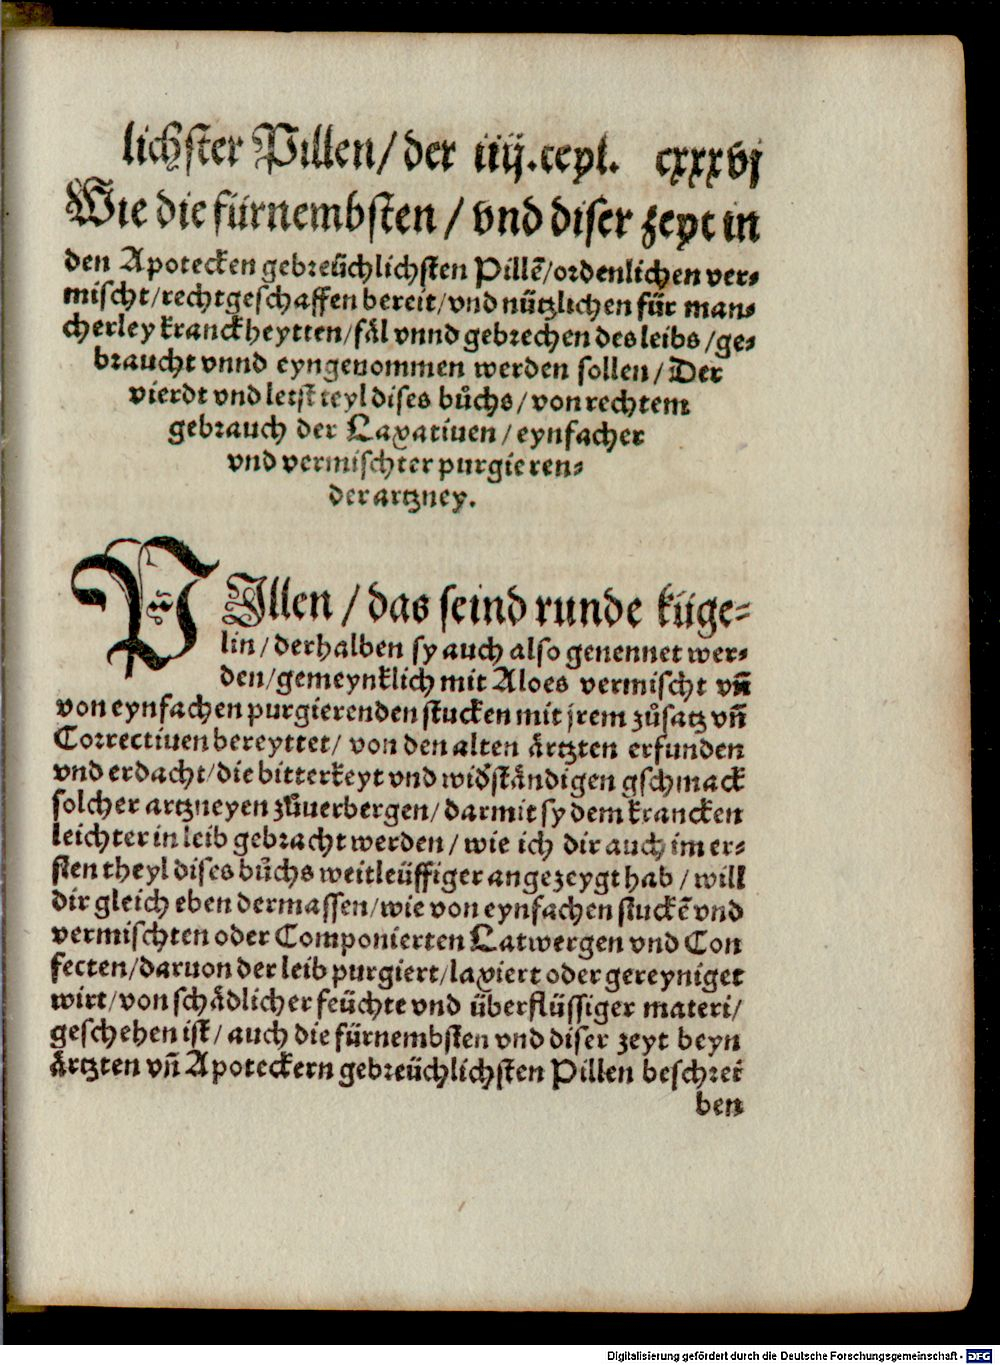 lichster Pillen/ der iiij.teyl. cxxxvj
Wie die fürnembsten / vnd diser zeyt in
den Apotecken gebreüchlichsten Pillẽ/ordenlichen ver-
mischt/rechtgeschaffen bereit/vnd nützlichen für man-
cherley kranckheytten/fäl vnnd gebrechen des leibs /ge-
braucht vnnd eyngenommen werden sollen/ Der
vierdt vnd letst teyl dises bůchs/ von rechtem
gebrauch der Laxatiuen / eynfacher
vnd vermischter purgieren-
der artzney.
PIllen / das seind runde küge-
lin/ derhalben sy auch also genennet wer-
den/gemeynklich mit Aloes vermischt vñ
von eynfachen purgierenden stucken mit jrem zůsatz vñ
Correctiuen bereyttet/ von den alten ärtzten erfunden
vnd erdacht/die bitterkeyt vnd wid'ständigen gschmack
solcher artzneyen zůuerbergen/darmit sy dem krancken
leichter in leib gebracht werden/ wie ich dir auch im er-
sten theyl dises bůchs weitleüffiger angezeygt hab / will
dir gleich eben dermassen/wie von eynfachen stuckẽ vnd
vermischten oder Componierten Latwergen vnd Con
fecten/daruon der leib purgiert/laxiert oder gereyniget
wirt/von schädlicher feüchte vnd überflüssiger materi/
geschehen ist/ auch die fürnembsten vnd diser zeyt beyn
ärtzten vñ Apoteckern gebreüchlichsten Pillen beschrei
ben
Digitalisierung gefördert durch die Deutsche Forschungsgemeinschaft - DFG